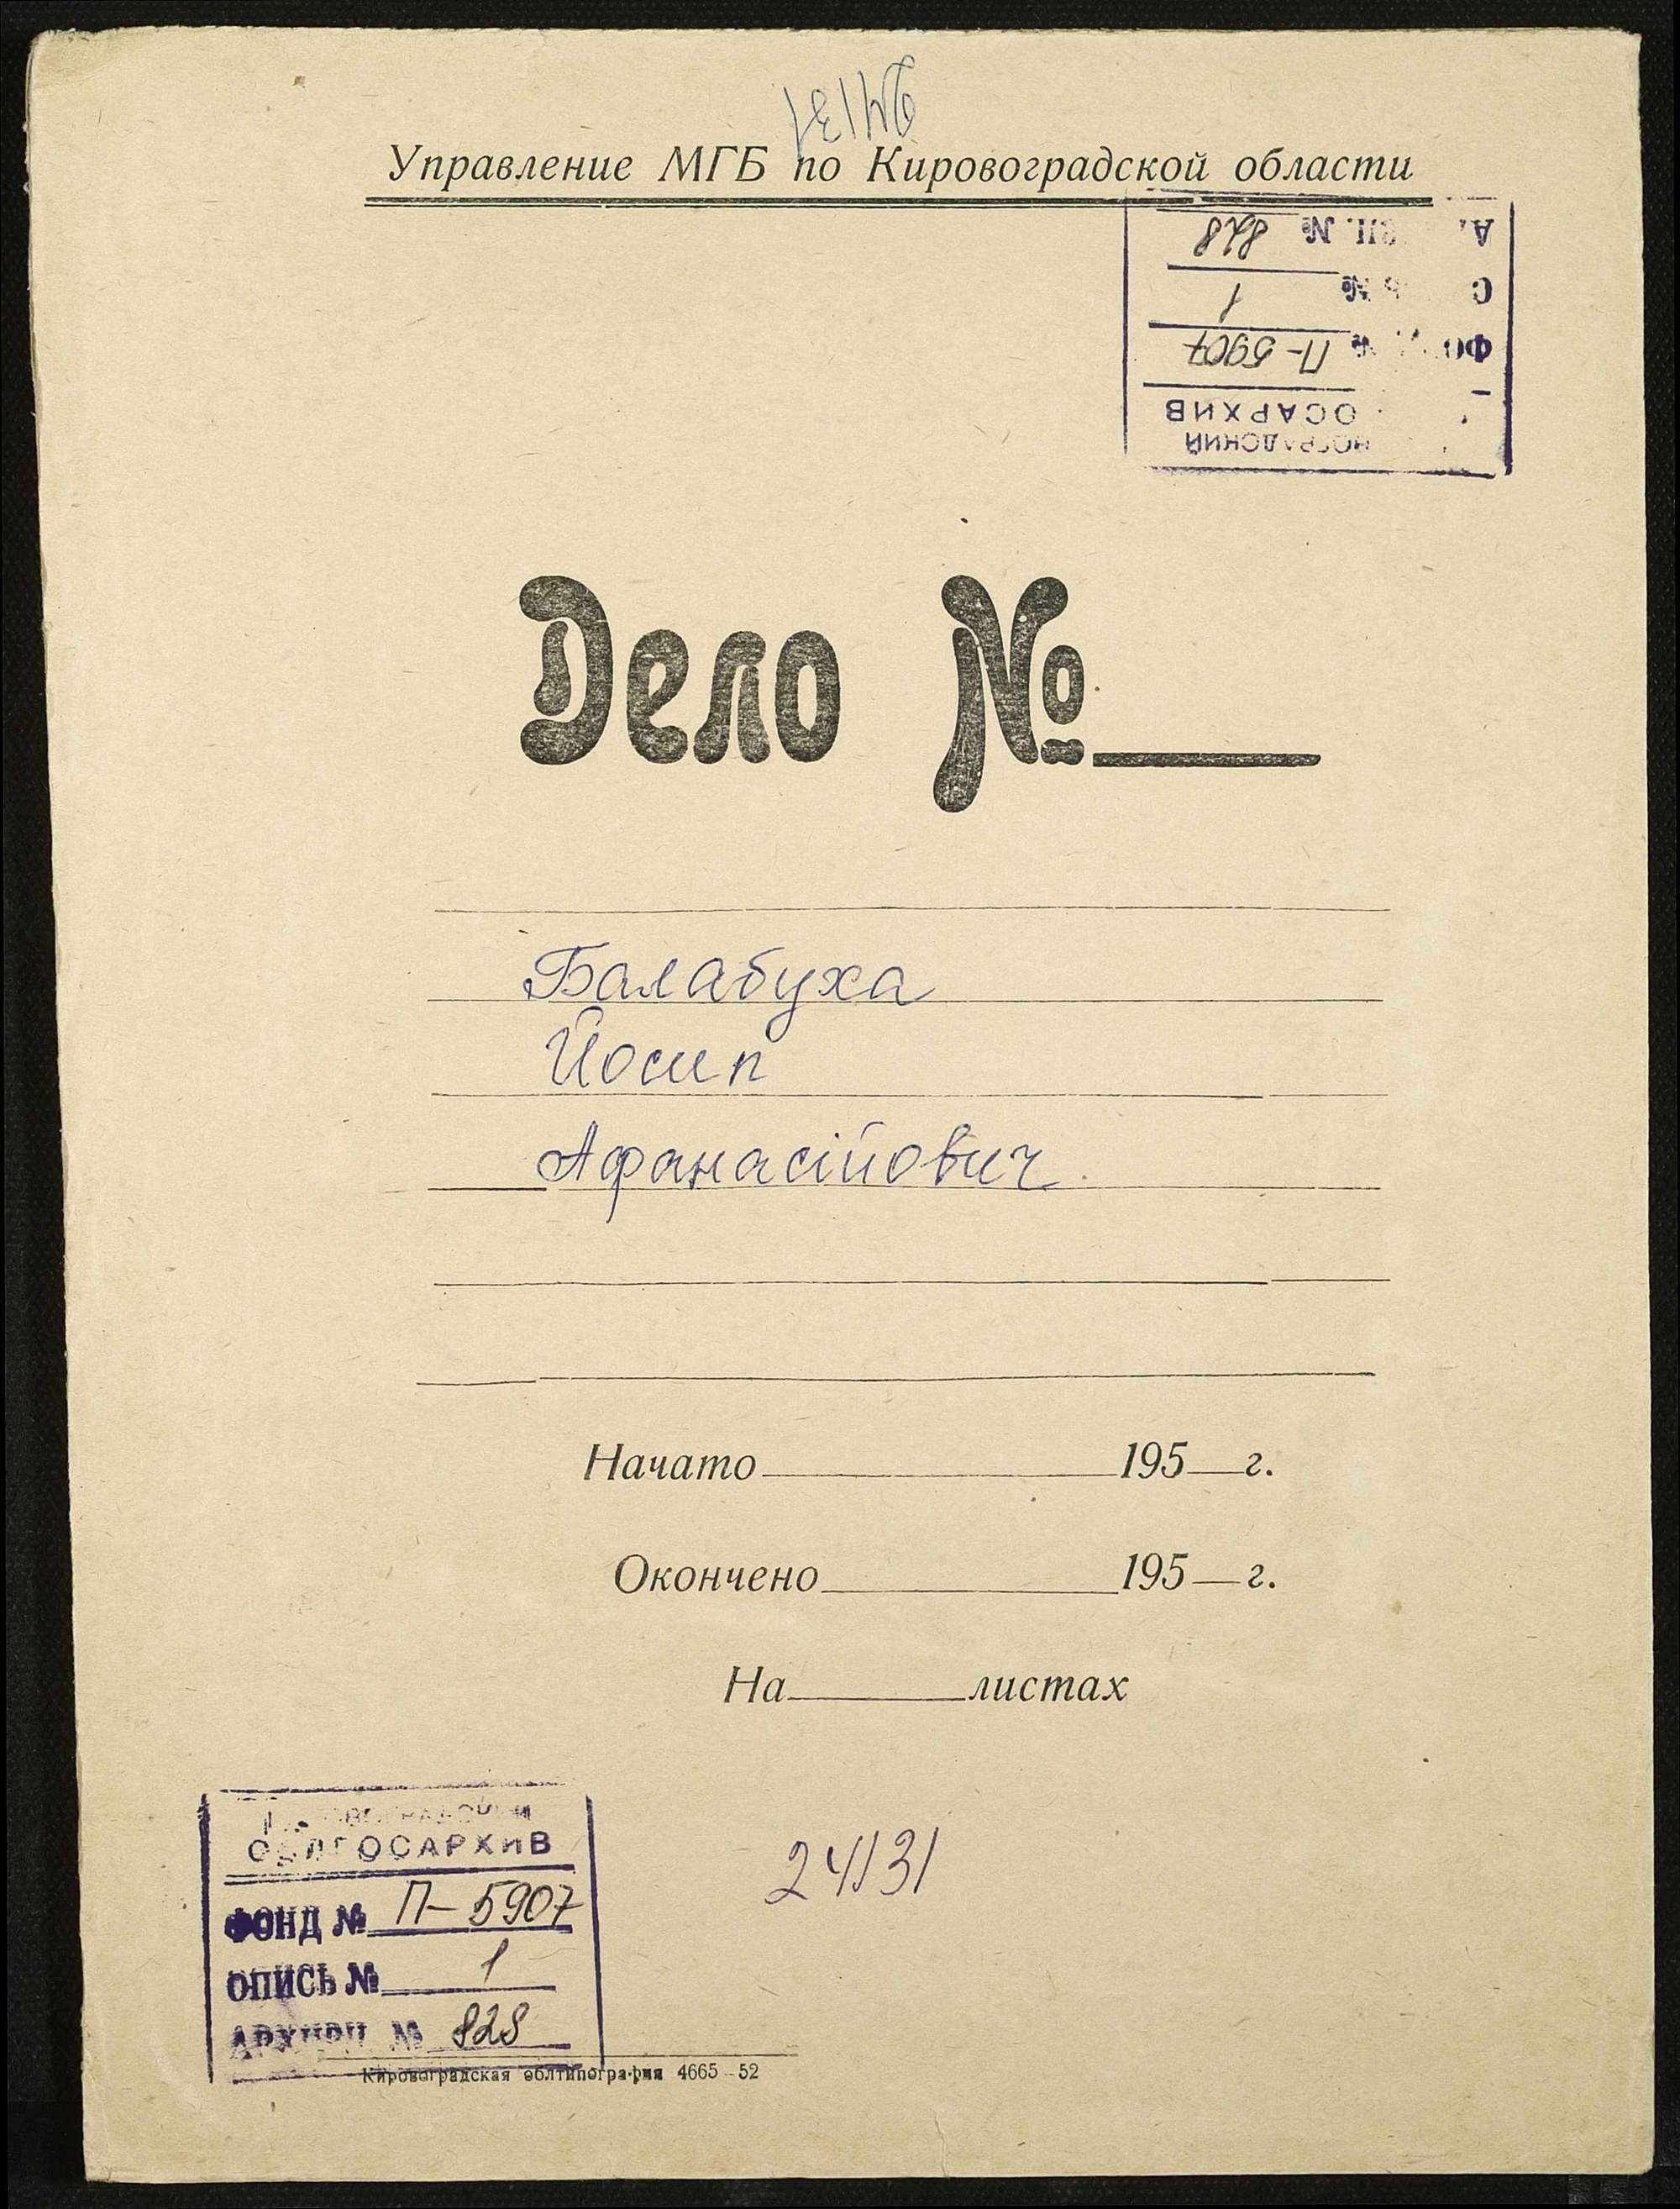 24131
Управление МГБ по Кировоградской области
828
1
Фонд № П-5907
ОСАРХИВ
Дело №
Балабуха
Йосип
Афанасійович
Начато 195 г.
Окончено 195 г.
На листах
ОБЛГОСАРХИВ
ФОНД № П-5907
ОПИСЬ № 1
АРХИВН. № 828
24131
Кировоградская облтипография 4665-52